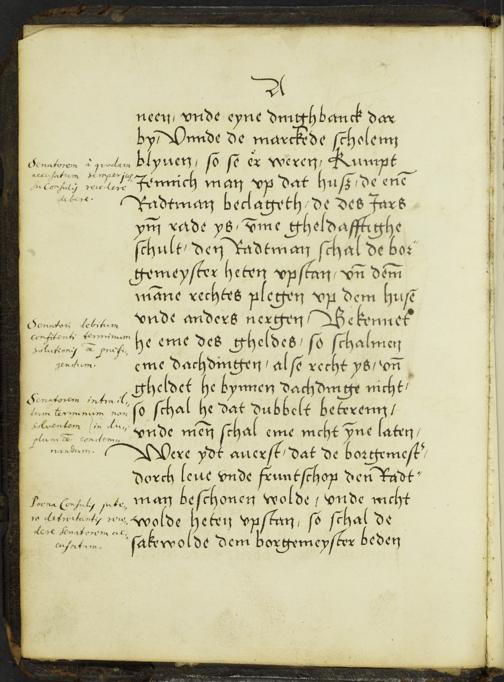 A
neen, vnde eyne dinghbanck dar
by, Vnnde de marckede scholenn
blyuen, so se ér weren, Kumpt
Jennich man vp dat husz, de enē
Radtman beclageth, de des Jars
ym̄ rade ys, vm̄e gheldafftighe
schult, den Radtman schal de bor-
gemeyster heten vpstan, vn̄ dem̄
man̄e rechtes plegen vp dem huse
vnde anders nergen, Bekennet
he eme des gheldes, so schalmen
eme dachdingen, alse recht ys, vn̄
gheldet he bynnen dachdinge nicht,
so schal he dat dubbelt beterenn,
vnde men̄ schal eme nicht ȳne laten,
Were ydt auerst, dat de borgemest'
dorch leue vnde fruntschop den̄ Radt-
man beschonen wolde, vnde nicht
wolde heten vpstan, so schal de
sakewolde dem borgemeyster beden
Senatorem à quodam
accusatum semper jussu
Consulis
debere.
Senatori debitum
confitenti terminum
solutionis ee praefi-
gendum.
Senatorem intra il-
lum terminum non
soluentem in du-
plum ee condem-
nandum.
Poena Consulis
detrectantis
Senatorem ac-
cusatum.